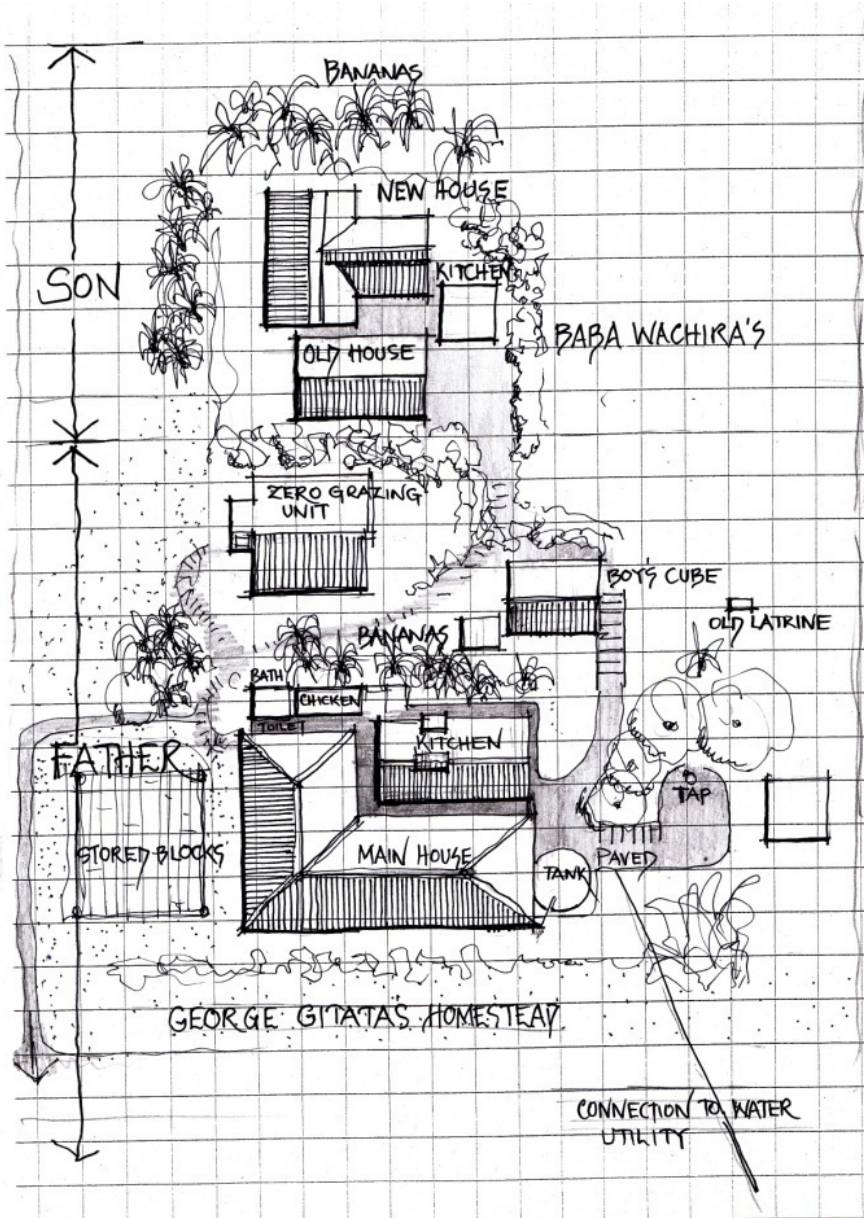 BANANAS
NEW HOUSE
KITCHEN
SON
OLD HOUSE
BABA WACHIRA'S
ZERO GRAZING
UNIT
BOY'S CUBE
OLD LATRINE
BANANAS
BATH
CHICKEN
TOILET
KITCHEN
FATHER
TAP
STORED BLOCKS
MAIN HOUSE
PAVED
TANK
GEORGE GITATA'S HOMESTEAD
CONNECTION TO WATER
UTILITY